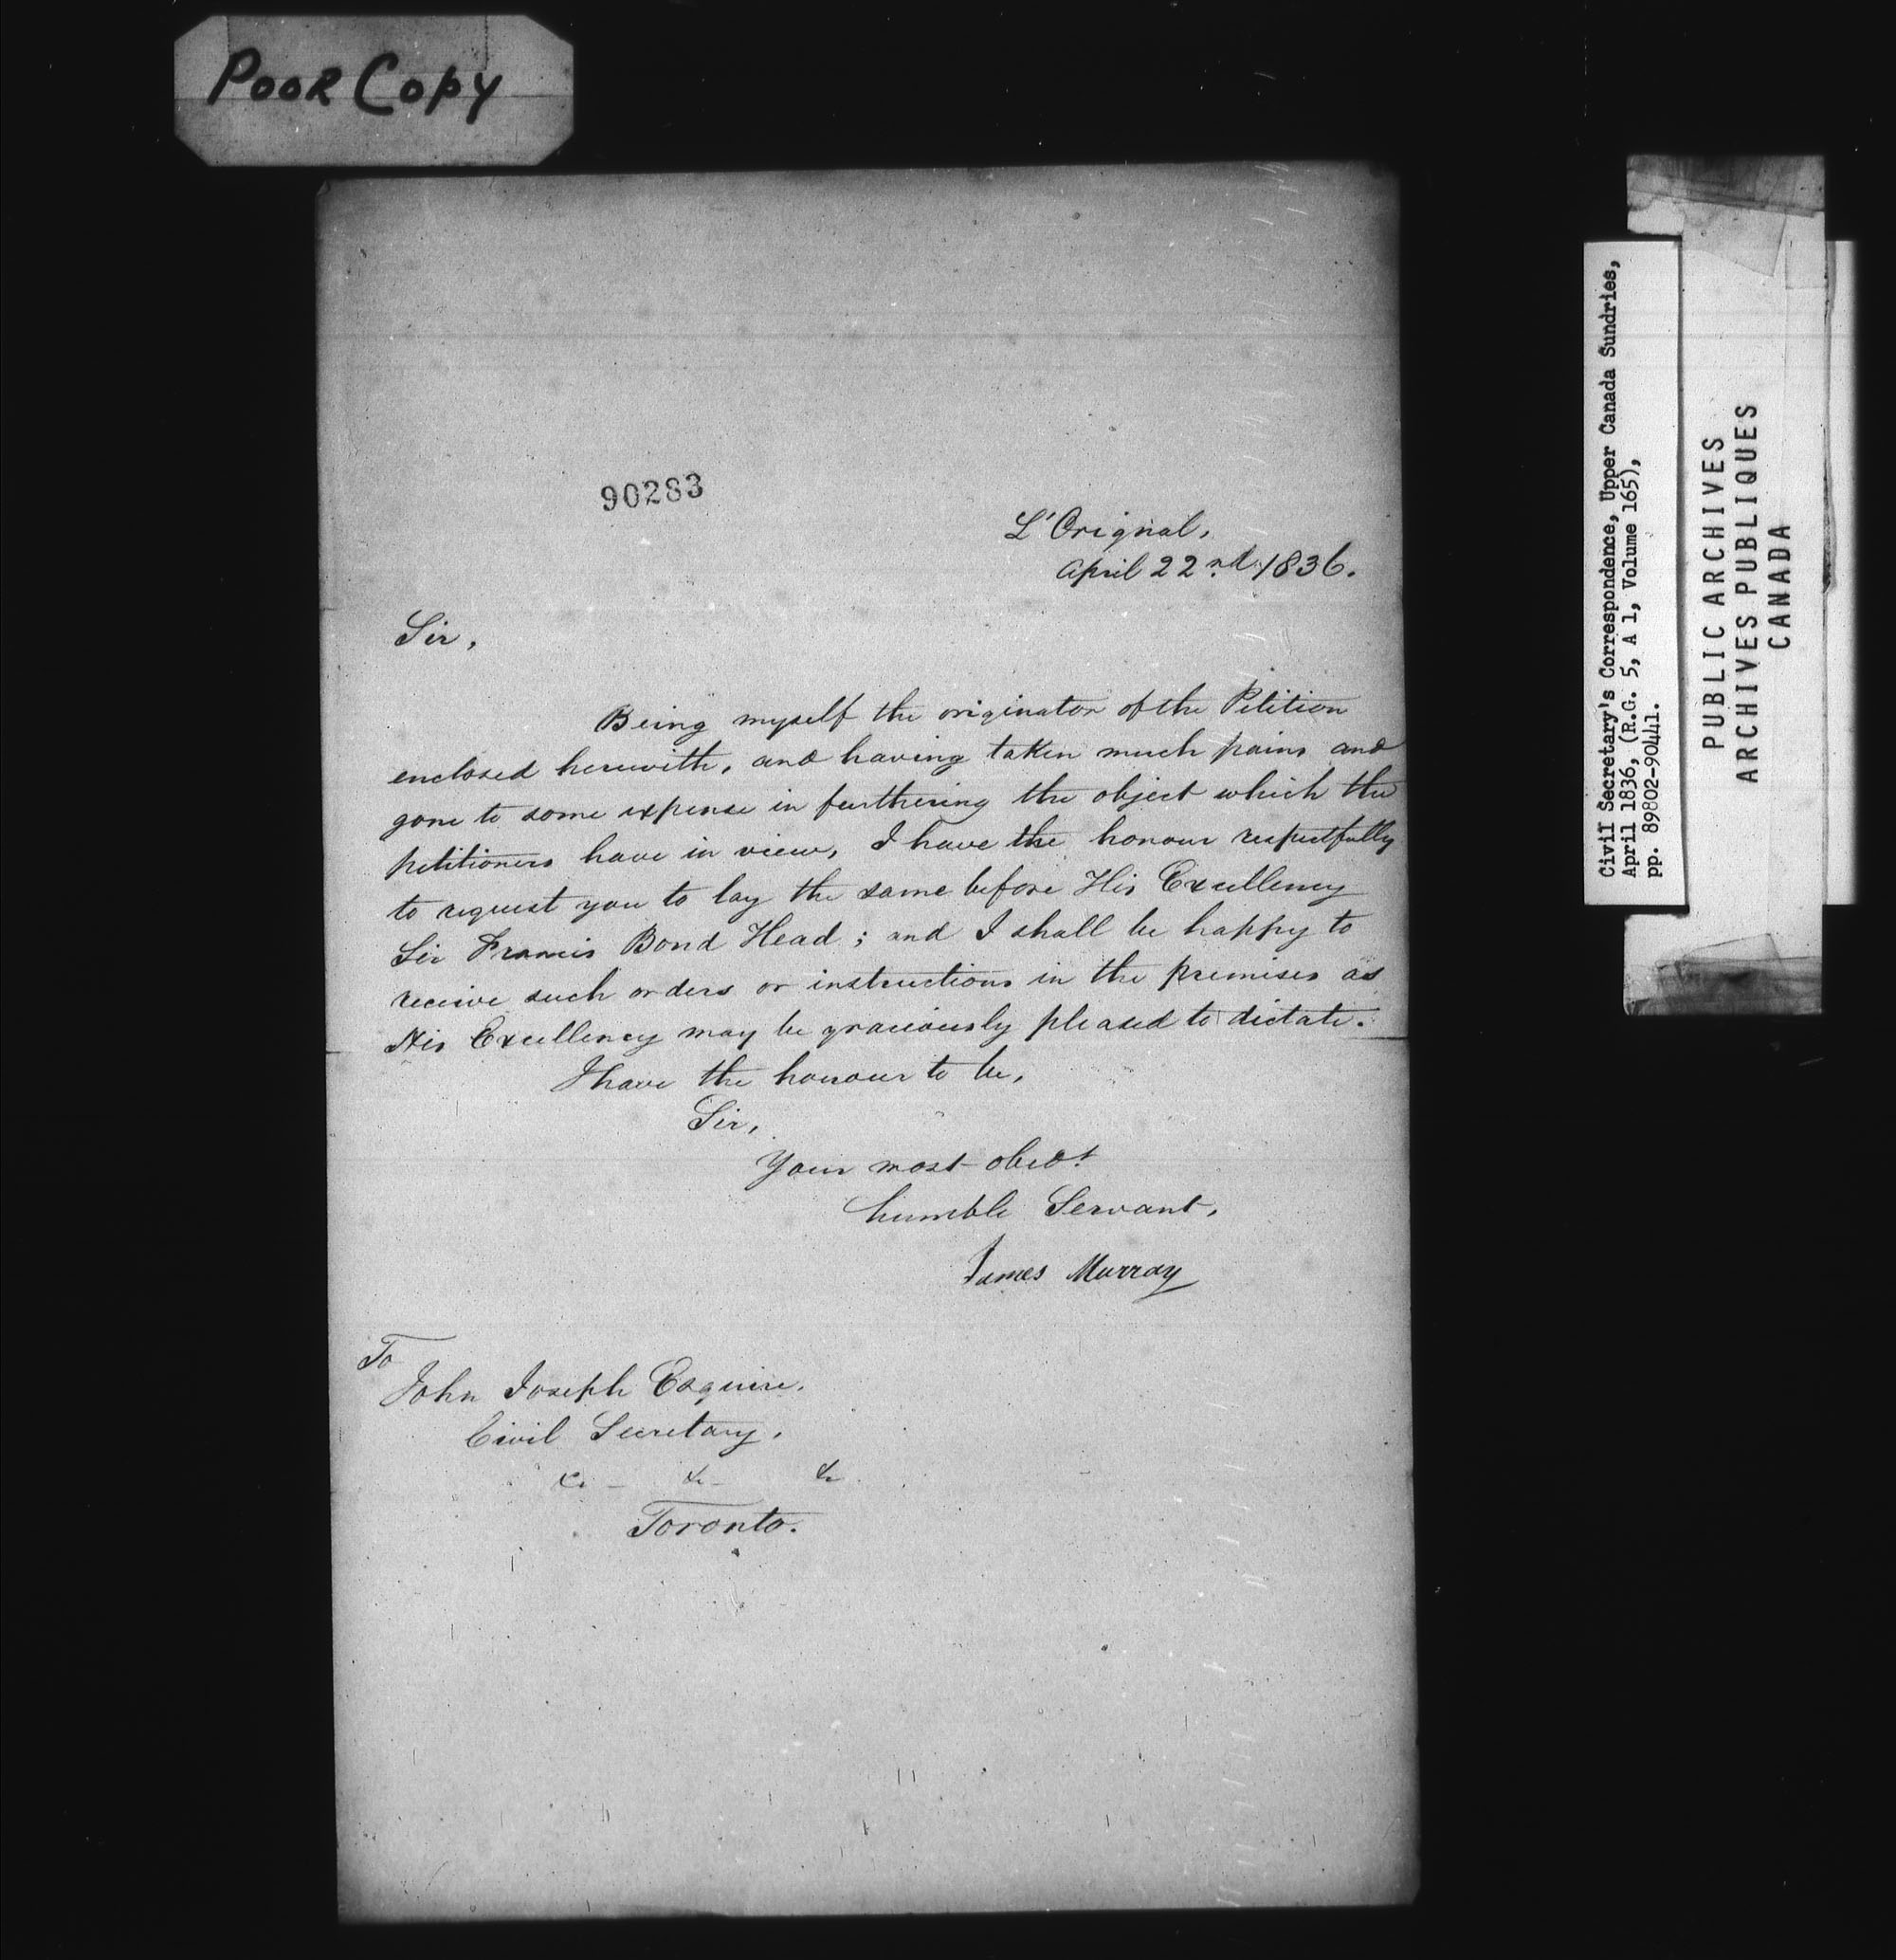 Poor Copy
90283
L'Orignal,
April 22nd. 1836.
Sir,
Being myself the originator of the Petition
enclosed herewith, and having taken much pains and
gone to some expense in furthering the object which the
petitioners have in view, I have the honour respectfully
to request you to lay the same before His Excellency
Sir Francis Bond Head; and I shall be happy to
receive such orders or instructions in the premises as
His Excellency may be graciously pleased to dictate.
I have the honour to be,
Sir,
Your most obedt.
humble Servant,
James Murray
To
John Joseph Esquire.
Civil Secretary,
&c - &c - &c
Toronto.
Civil Secretary's Correspondence, Upper Canada Sundries,
April 1836, (R.G. 5, A 1, Volume 165),
pp. 89802-90441.
PUBLIC ARCHIVES
ARCHIVES PUBLIQUES
CANADA